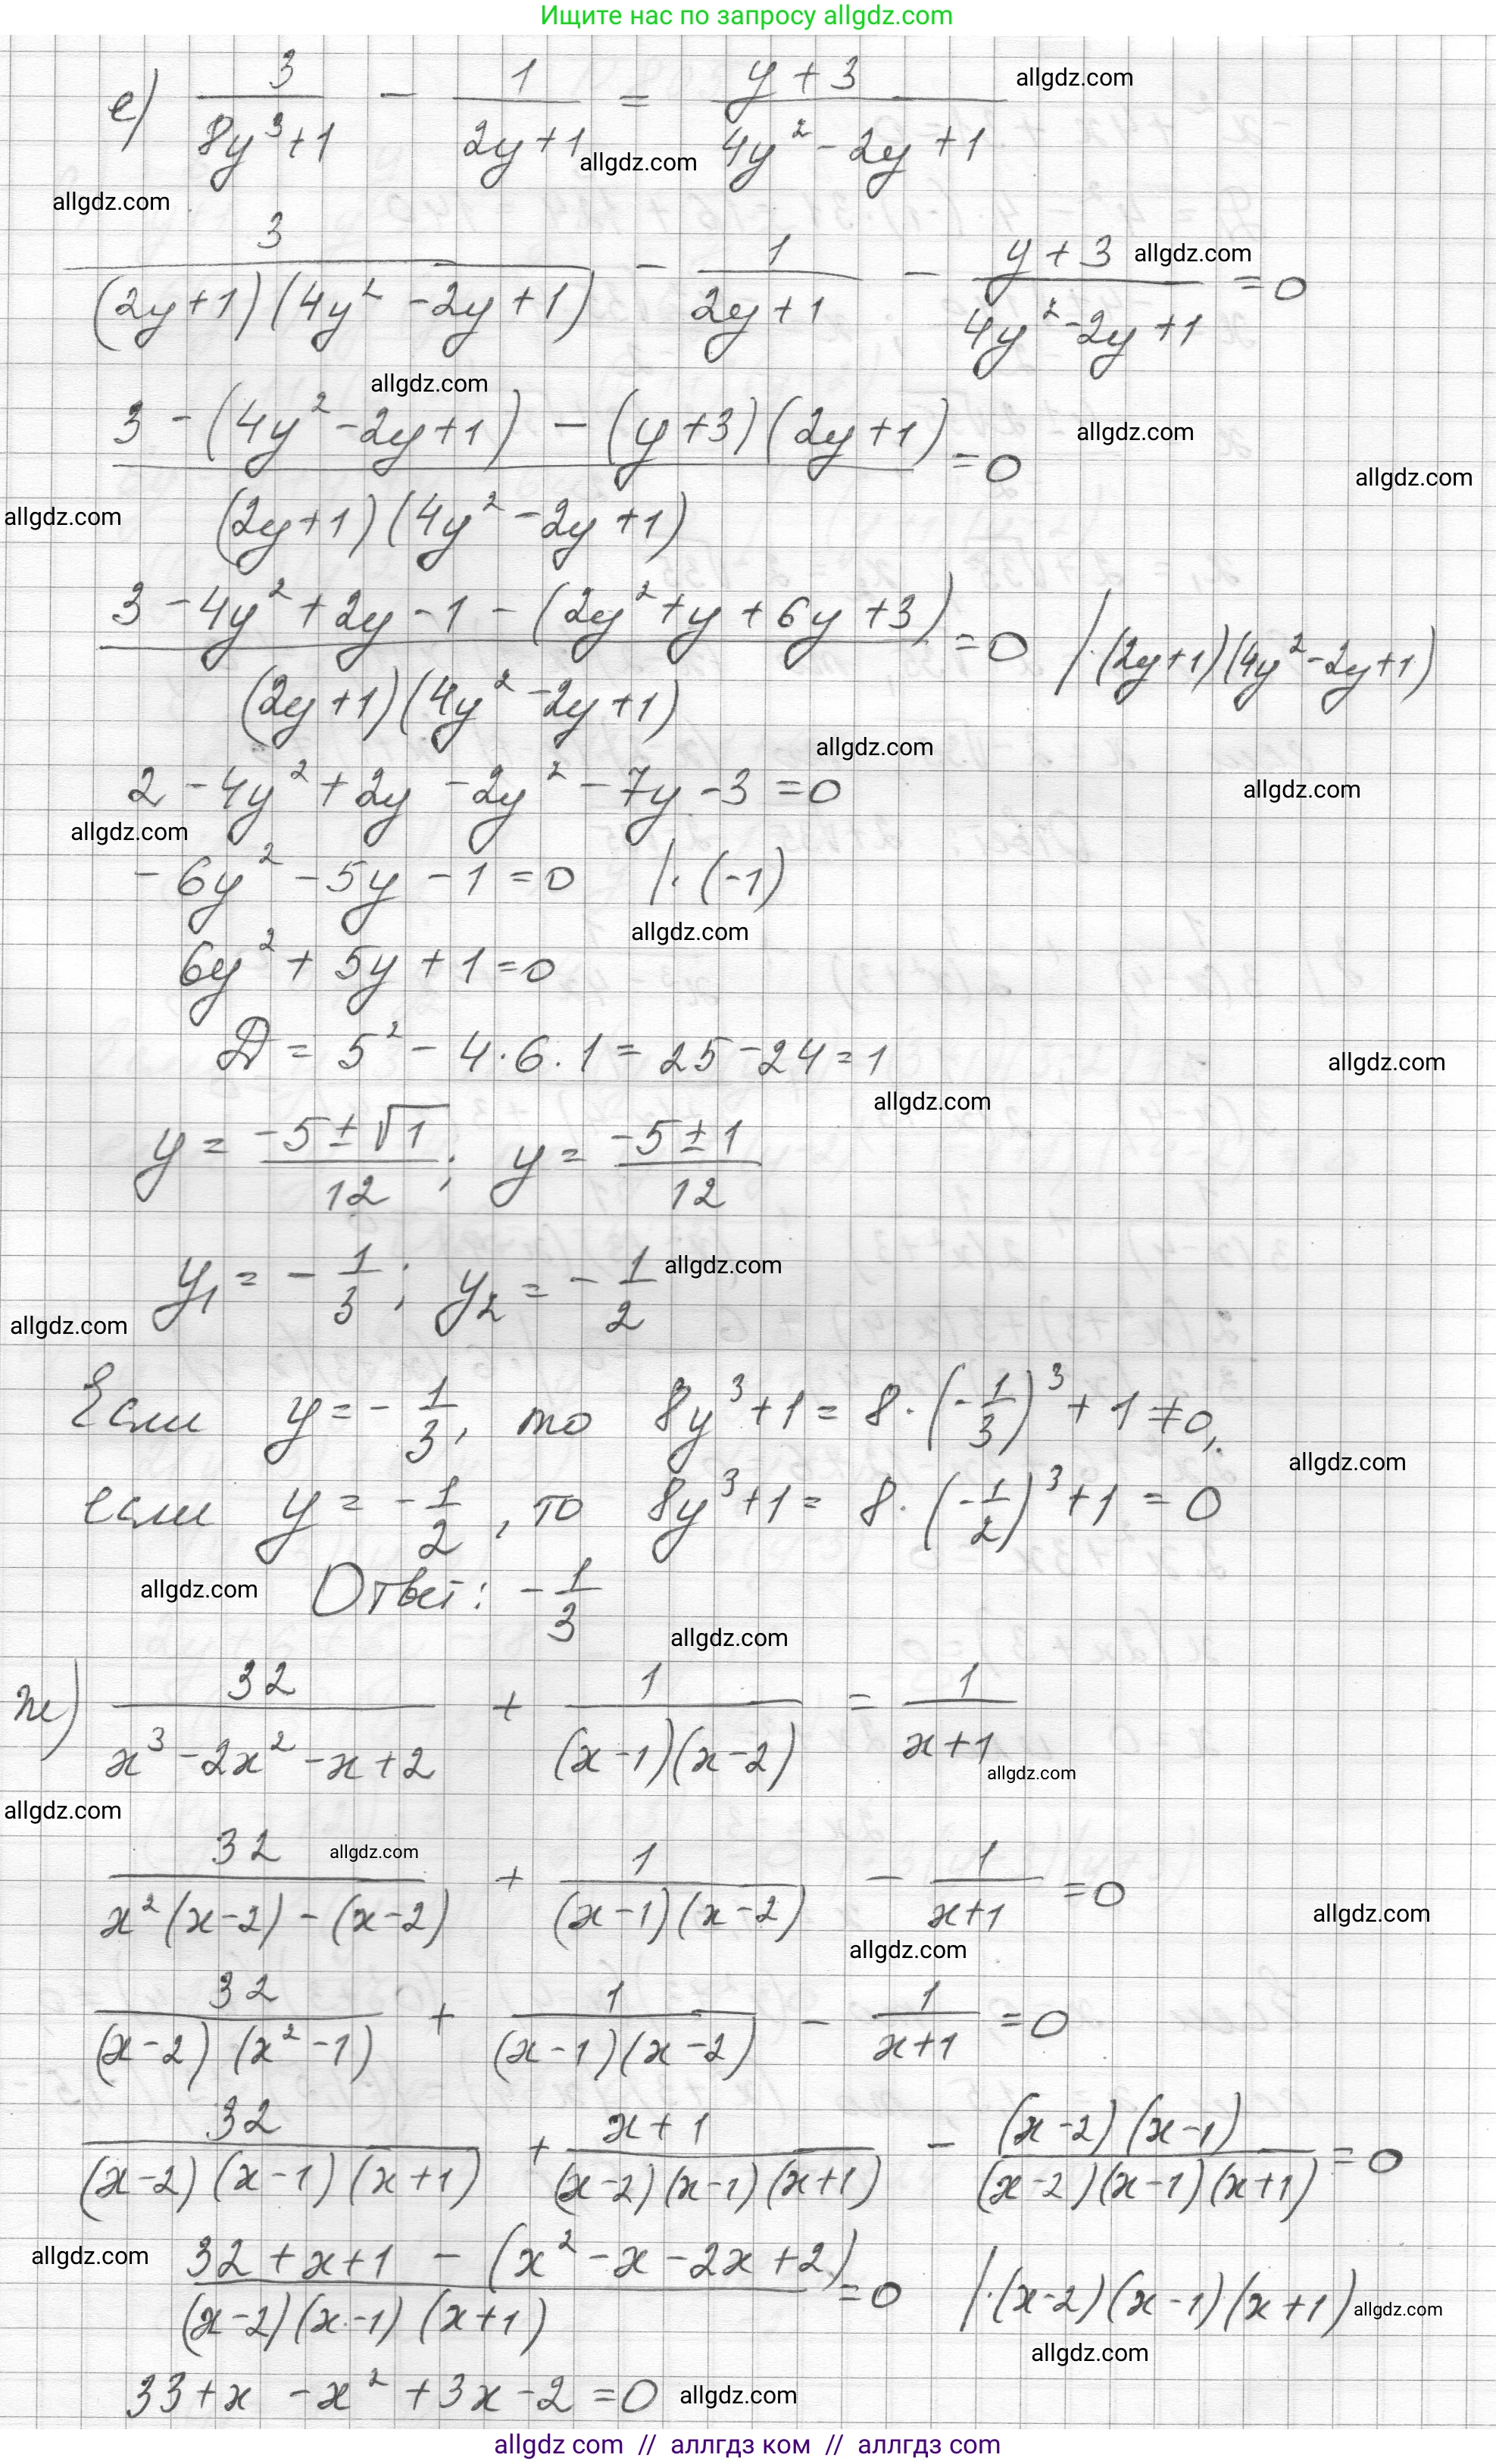 Ищите нас по запросу allgdz.com
е) 3/(8y³+1) - 1/(2y+1) = (y+3)/(4y²-2y+1) allgdz.com
allgdz.com
allgdz.com
3/((2y+1)(4y²-2y+1)) - 1/(2y+1) - (y+3)/(4y²-2y+1) = 0 allgdz.com
allgdz.com
(3-(4y²-2y+1)-(y+3)(2y+1))/((2y+1)(4y²-2y+1)) = 0 allgdz.com
allgdz.com
allgdz.com
(3-4y²+2y-1-(2y²+y+6y+3))/((2y+1)(4y²-2y+1)) = 0 /·(2y+1)(4y²-2y+1)
allgdz.com
2-4y²+2y-2y²-7y-3=0 allgdz.com
allgdz.com
-6y²-5y-1=0 /·(-1)
allgdz.com
6y²+5y+1=0
D=5²-4·6·1=25-24=1 allgdz.com
allgdz.com
y=(-5±√1)/12; y=(-5±1)/12
y₁=-1/3; y₂=-1/2 allgdz.com
allgdz.com
Если y=-1/3, то 8y³+1=8·(-1/3)³+1≠0,
allgdz.com
если y=-1/2, то 8y³+1=8·(-1/2)³+1=0
allgdz.com Ответ: -1/3
allgdz.com
ж) 32/(x³-2x²-x+2) + 1/((x-1)(x-2)) = 1/(x+1)
allgdz.com
allgdz.com
32/(x²(x-2)-(x-2)) + 1/((x-1)(x-2)) - 1/(x+1) = 0
allgdz.com
allgdz.com
allgdz.com
32/((x-2)(x²-1)) + 1/((x-1)(x-2)) - 1/(x+1) = 0
32/((x-2)(x-1)(x+1)) + (x+1)/((x-2)(x-1)(x+1)) - ((x-2)(x-1))/((x-2)(x-1)(x+1)) = 0
allgdz.com
(32+x+1-(x²-x-2x+2))/((x-2)(x-1)(x+1)) = 0 /·(x-2)(x-1)(x+1) allgdz.com
allgdz.com
33+x-x²+3x-2=0 allgdz.com
allgdz com // аллгдз ком // аллгдз com